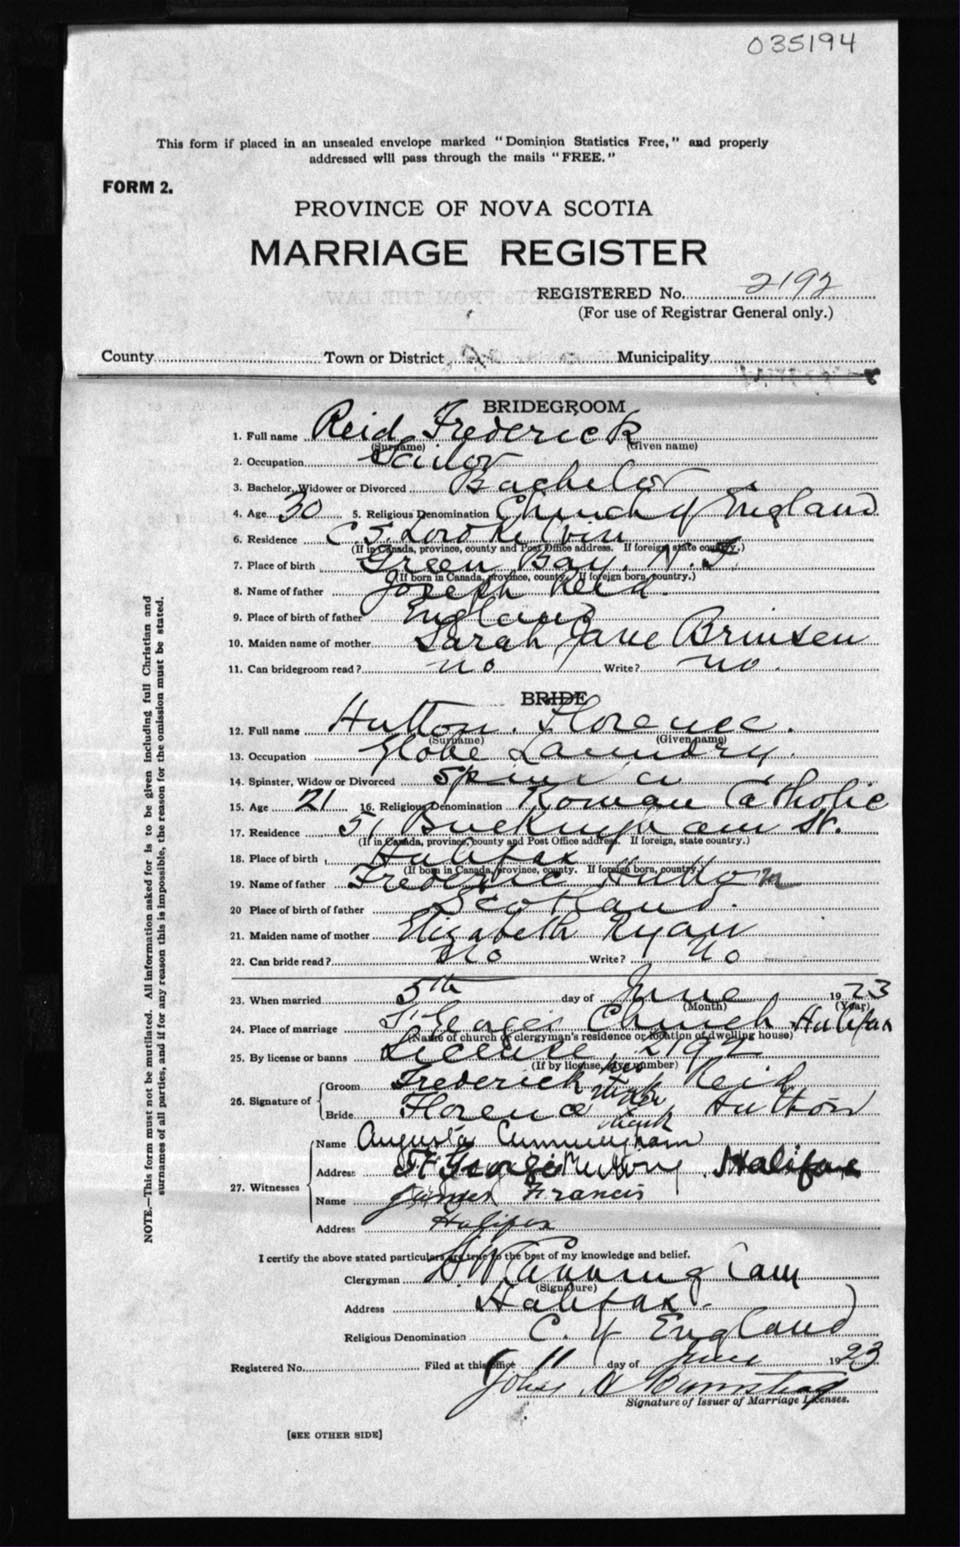 035194
This form if placed in an unsealed envelope marked "Dominion Statistics Free," and properly
addressed will pass through the mails "FREE."
FORM 2.
PROVINCE OF NOVA SCOTIA
MARRIAGE REGISTER
REGISTERED No. 2192
(For use of Registrar General only.)
County Town or District Municipality
BRIDEGROOM
1. Full name Reid Frederick
(Surname) (Given name)
2. Occupation Sailor
3. Bachelor, Widower or Divorced Bachelor
4. Age 30 5. Religious Denomination Church of England
6. Residence C. S. Lord Kelvin
(If in Canada, province, county and Post Office address. If foreign state country.)
7. Place of birth Green Bay. N. F.
(If born in Canada, province, county. If foreign born, country.)
8. Name of father Joseph Reid.
9. Place of birth of father England
10. Maiden name of mother Sarah Jane Brinsen
11. Can bridegroom read? no Write? no.
BRIDE
12. Full name Hutton. Florence.
(Surname) (Given name)
13. Occupation Globe Laundry.
14. Spinster, Widow or Divorced
15. Age 21 16. Religious Denomination Roman Catholic
17. Residence 51 Buckingham St.
(If in Canada, province, county and Post Office address. If foreign, state country.)
18. Place of birth Halifax
(If born in Canada, province, county. If foreign born, country)
19. Name of father Frederic Hutton
20 Place of birth of father Scotland.
21. Maiden name of mother Elizabeth Ryan
22. Can bride read? No Write? No
23. When married 5th day of June 1923
(Month) (Year)
24. Place of marriage St Georges Church Halifax
(Name of church or clergyman's residence or location of dwelling house)
25. By license or banns License, 2192
(If by license, give number)
26. Signature of Groom Frederick his mark Reid
Bride Florence her mark Hutton
27. Witnesses Name Augusta Cunningham
Address St Georges Rectory Halifax
Name James Francis
Address Halifax
I certify the above stated particulars are true to the best of my knowledge and belief.
Clergyman H W Cunningham
(Signature)
Address Halifax.
Religious Denomination C. of England
Registered No. Filed at this office 11 day of June 1923
John N
Signature of Issuer of Marriage Licenses.
[SEE OTHER SIDE]
NOTE.—This form must not be mutilated. All information asked for is to be given including full Christian and
surnames of all parties, and if for any reason this is impossible, the reason for the omission must be stated.